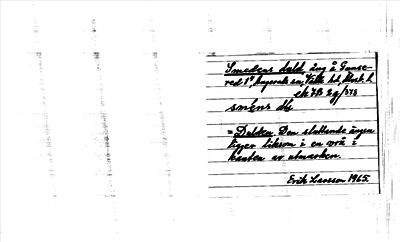 Smedens dald äng å Gunse-
red 1º, sn, Vätle hd, 
ek 7B 2g/378
smens da
= Dalden. Den sluttande ängen
ligger liksom i en vrå i
kanten av utmarken.
Erik Larsson 1965.